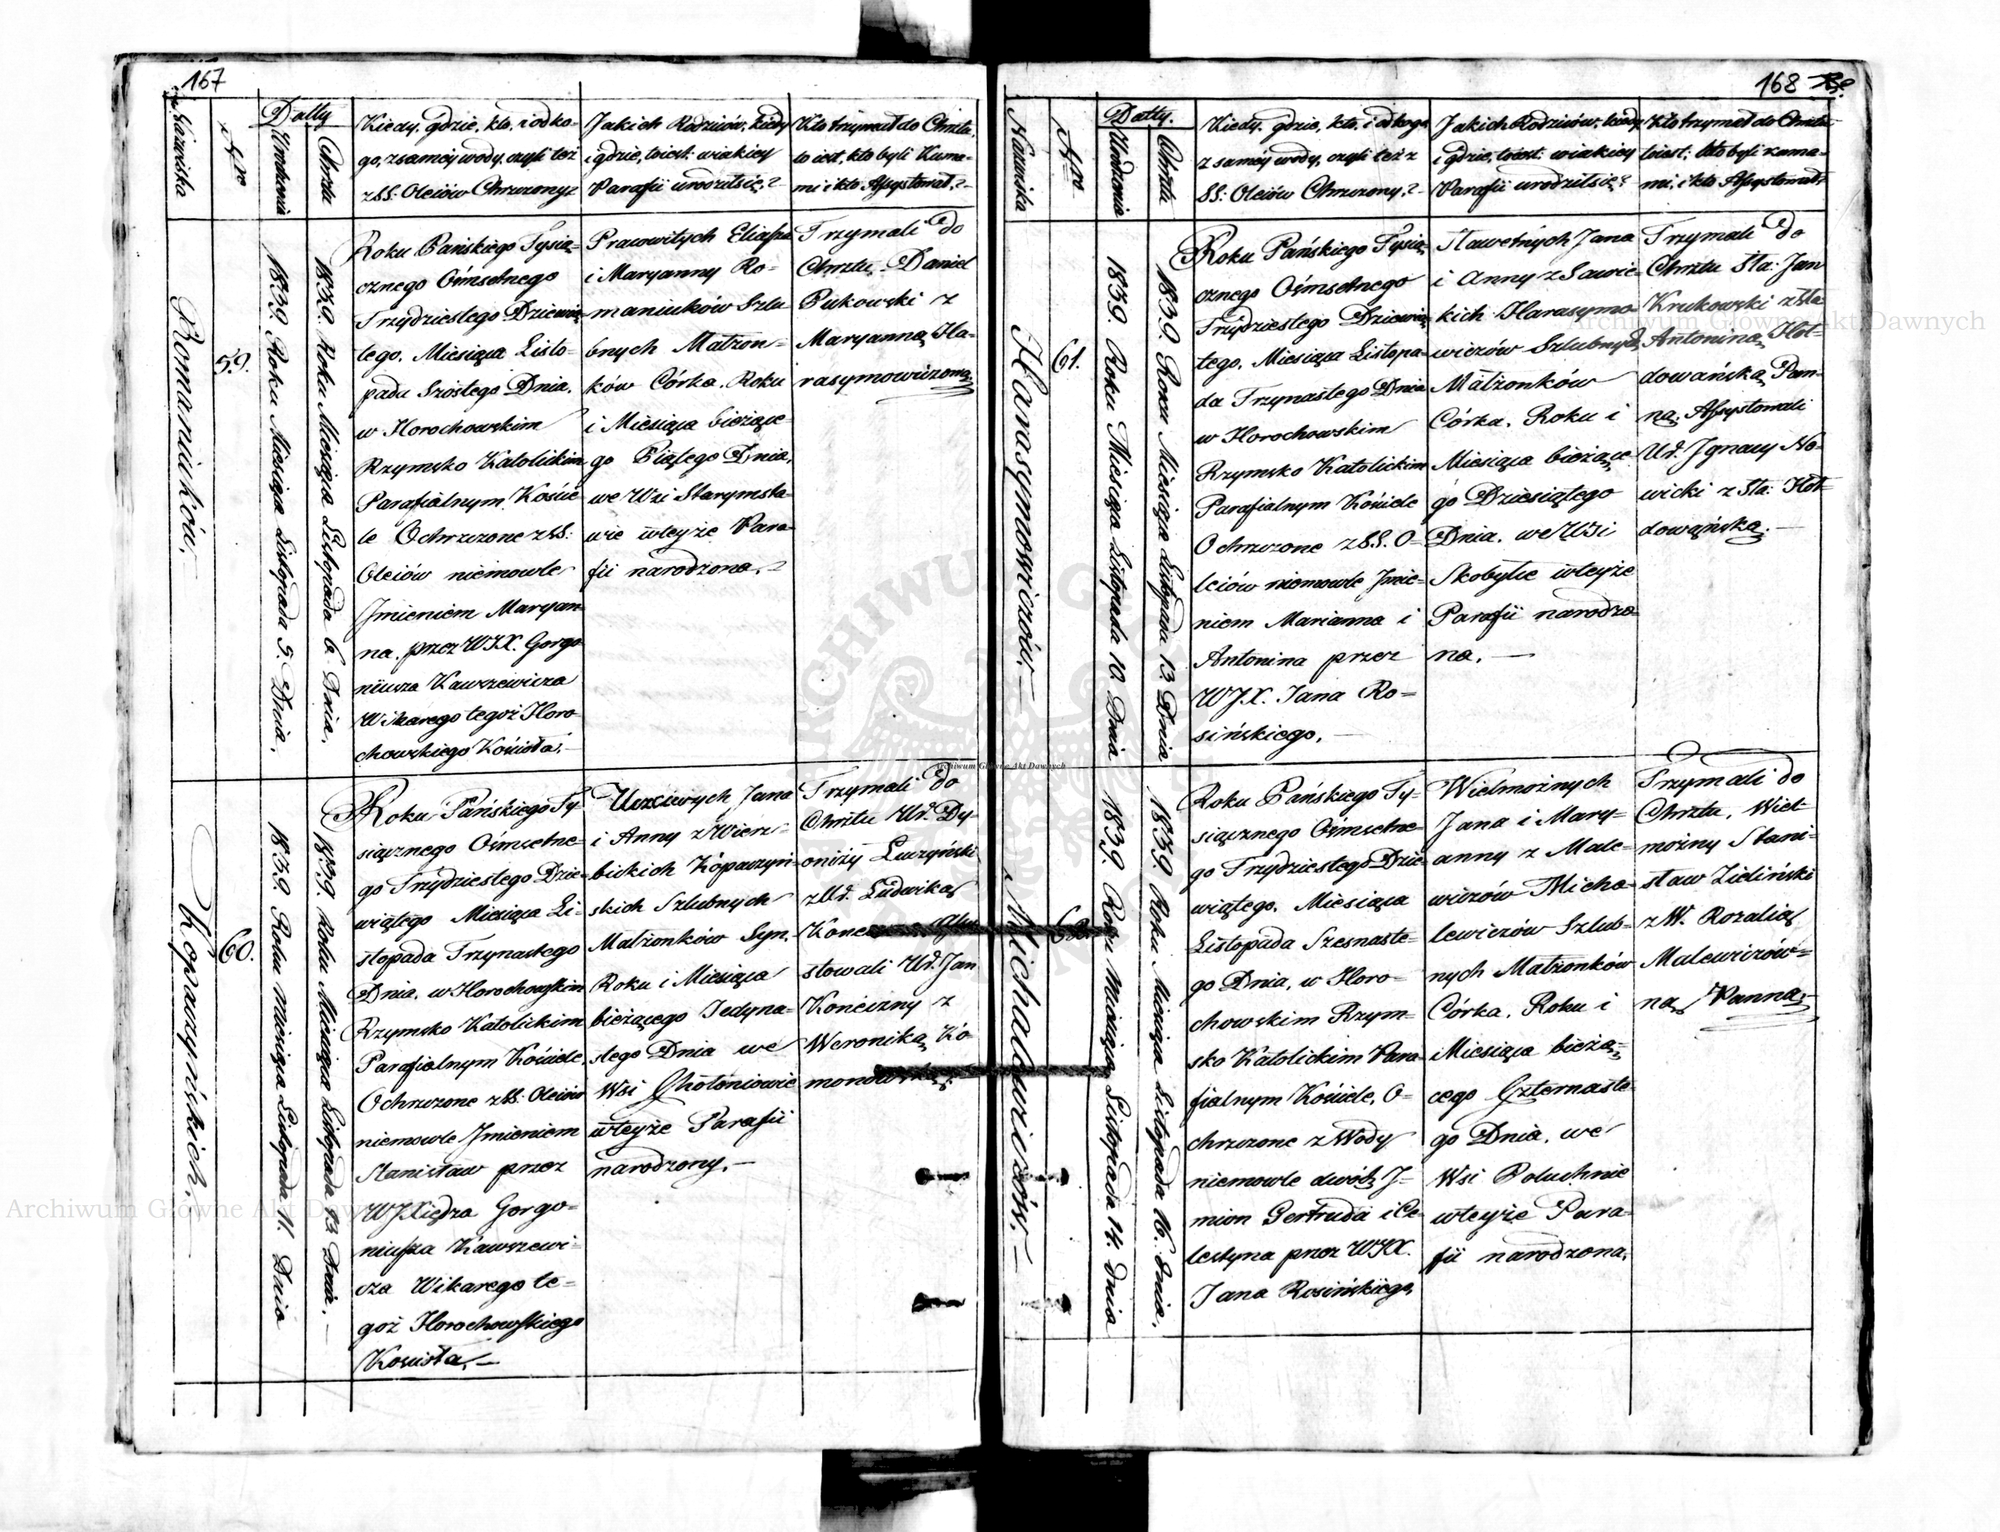 167
Nazwiska
Nro
Datty
Urodzenia
Chrztu
Kiedy, gdzie, kto, i od ko=
go, z samey wody, czyli też
z SS: Oleiów Chrzczony?
Jakich Rodziców, kiedy
i gdzie, to iest: w iakiey
Parafii urodził się?
Kto trzymał do Chrztu,
to iest, kto byli Kuma=
mi i kto Assystował?
Romaniuków.
59.
1839. Roku Miesiąca Listopada 5. Dnia.
1839. Roku Miesiąca Listopada 6. Dnia.
Roku Pańskiego Tysią=
cznego Ośmsetnego
Trzydziestego Dziewią
tego, Miesiąca Listo=
pada Szóstego Dnia,
w Horochowskim
Rzymsko Katolickim
Parafialnym Kościé
le Ochrzczone z SS:
Oleiów niemowle
Jmieniem Maryan=
na. przez WJX. Gorgo
niusza Kawszewicza
Wikarego tegoż Horo
chowskiego Kościoła.
Pracowitych Eliasza
i Maryanny Ro=
maniuków Szlu
bnych Małżon=
ków Córka. Roku
i Miesiąca bieżące=
go Piątego Dnia,
we Wsi Starymsta=
wie w teyże Para=
fii narodzona.
Trzymali do
Chrztu Daniel
Bukowski z
Maryanną Ha=
rasymowiczową
Kopaczyńskich.
60.
1839. Roku Miesiąca Listopada 11. Dnia
1839. Roku Miesiąca Listopada 13. Dnia.
Roku Pańskiego Ty=
siącznego Ośmsetne=
go Trzydziestego Dzie=
wiątego Miesiąca Li=
stopada Trzynastego
Dnia. w Horochowskim
Rzymsko Katolickim
Parafialnym Kościele
Ochrzczone z SS: Oleiów
niemowle Jmieniem
Stanisław przez
WJXiędza Gorgo=
niusza Kawszewi=
cza Wikarego te=
goż Horochowskiego
Kościoła.
Uczciwych Jana
i Anny z Wierz=
bickich Kopaczyń=
skich Szlubnych
Małżonków Syn.
Roku i Miesiąca
bieżącego Jedyna=
stego Dnia we
Wsi Chołoniowie
w teyże Parafii
narodzony.
Trzymali do
Chrztu Ur. Dy=
onizy Luczyński
z Ur. Ludwiką
stowali Ur. Jan
Koneczny z
Weroniką Ko
monowską.
168
Nazwiska
Nro
Datty.
Urodzenia
Chrztu
Kiedy, gdzie, kto, i od kogo
z samey wody, czyli też z
SS: Oleiów Chrzczony?
Jakich Rodziców, kiedy
i gdzie, to iest: w iakiey
Parafii urodził się?
Kto trzymał do Chrztu
to iest: kto byli kuma=
mi, i kto Assystował?
Harasymowiczów.
61.
1839. Roku Miesiąca Listopada 10. Dnia
1839. Roku Miesiąca Listopada 13. Dnia
Roku Pańskiego Tysią=
cznego Ośmsetnego
Trzydziestego Dziewią
tego, Miesiąca Listopa=
da Trzynastego Dnia
w Horochowskim
Rzymsko Katolickim
Parafialnym Kościele
Ochrzczone z S.S. O=
leiów niemowle Jmie=
niem Marianna i
Antonina przez
WJX. Jana Ro=
sińskiego.
Sławetnych Jana
i Anny z Sawic=
kich Harasymo=
wiczów Szlubnych
Małżonków
Córka. Roku i
Miesiąca bieżące
go Dziesiątego
Dnia. we Wsi
Skobyłce w teyże
Parafii narodzo
na.
Trzymali do
Chrztu Sła: Jan
Krukowski z Sła
Antoniną Hoł=
dowańską Pan=
ną; Assystowali
Ur. Jgnacy No=
wicki z Sła: Hoł=
dowańską.
Michalewiczów.
62.
1839. Roku Miesiąca Listopada 14. Dnia
1839. Roku Miesiąca Listopada 16. Dnia.
Roku Pańskiego Ty=
siącznego Ośmsetne=
go Trzydziestego Dzie=
wiątego. Miesiąca
Listopada Szesnaste=
go Dnia, w Horo=
chowskim Rzym=
sko Katolickim Para=
fialnym Kościele, O=
chrzczone z Wody
niemowle dwóch J=
mion Gertruda i Ce=
lestyna przez WJX.
Jana Rosińskiego.
Wielmożnych
Jana i Mary=
anny z Male=
wiczów Micha=
lewiczów Szlub=
nych Małżonków
Córka. Roku i
Miesiąca bieżą=
cego Czternaste=
go Dnia. we
Wsi Poluchnie
w teyże Para=
fii narodzona.
Trzymali do
Chrztu, Wiel=
możny Stani=
sław Zieliński
z W. Rozalią
Malewiczów=
ną, Panną.
Archiwum Główne Akt Dawnych
Archiwum Główne Akt Dawnych
Archiwum Główne Akt Dawnych